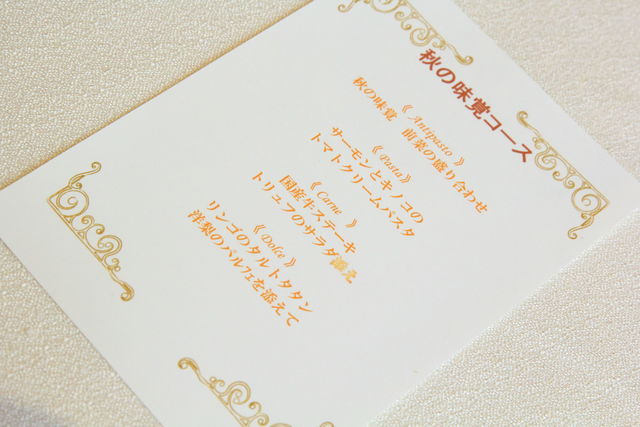 秋の味覚コース
《 Antipasto 》
秋の味覚 前菜の盛り合わせ
《 Pasta 》
サーモンとキノコの
トマトクリームパスタ
《 Carne 》
国産牛ステーキ
トリュフのサラダ添え
《 Dolce 》
リンゴのタルトタタン
洋梨のパルフェを添えて